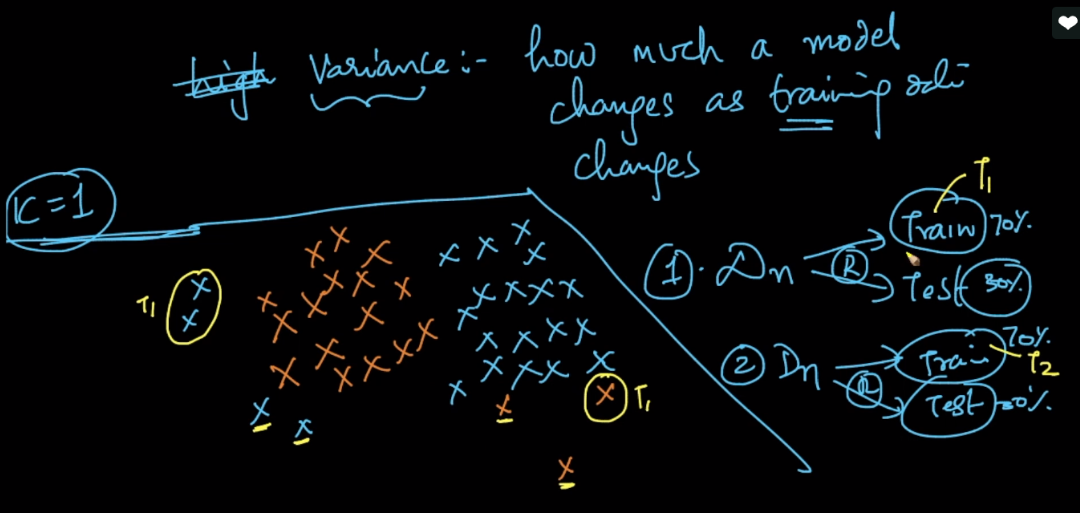 high Variance:- how much a model
changes as training
changes
K=1
T1
T1
1. Dn
R
Train 70%
T1
Test 30%
2 Dn
R
Train 70%
T2
Test 30%